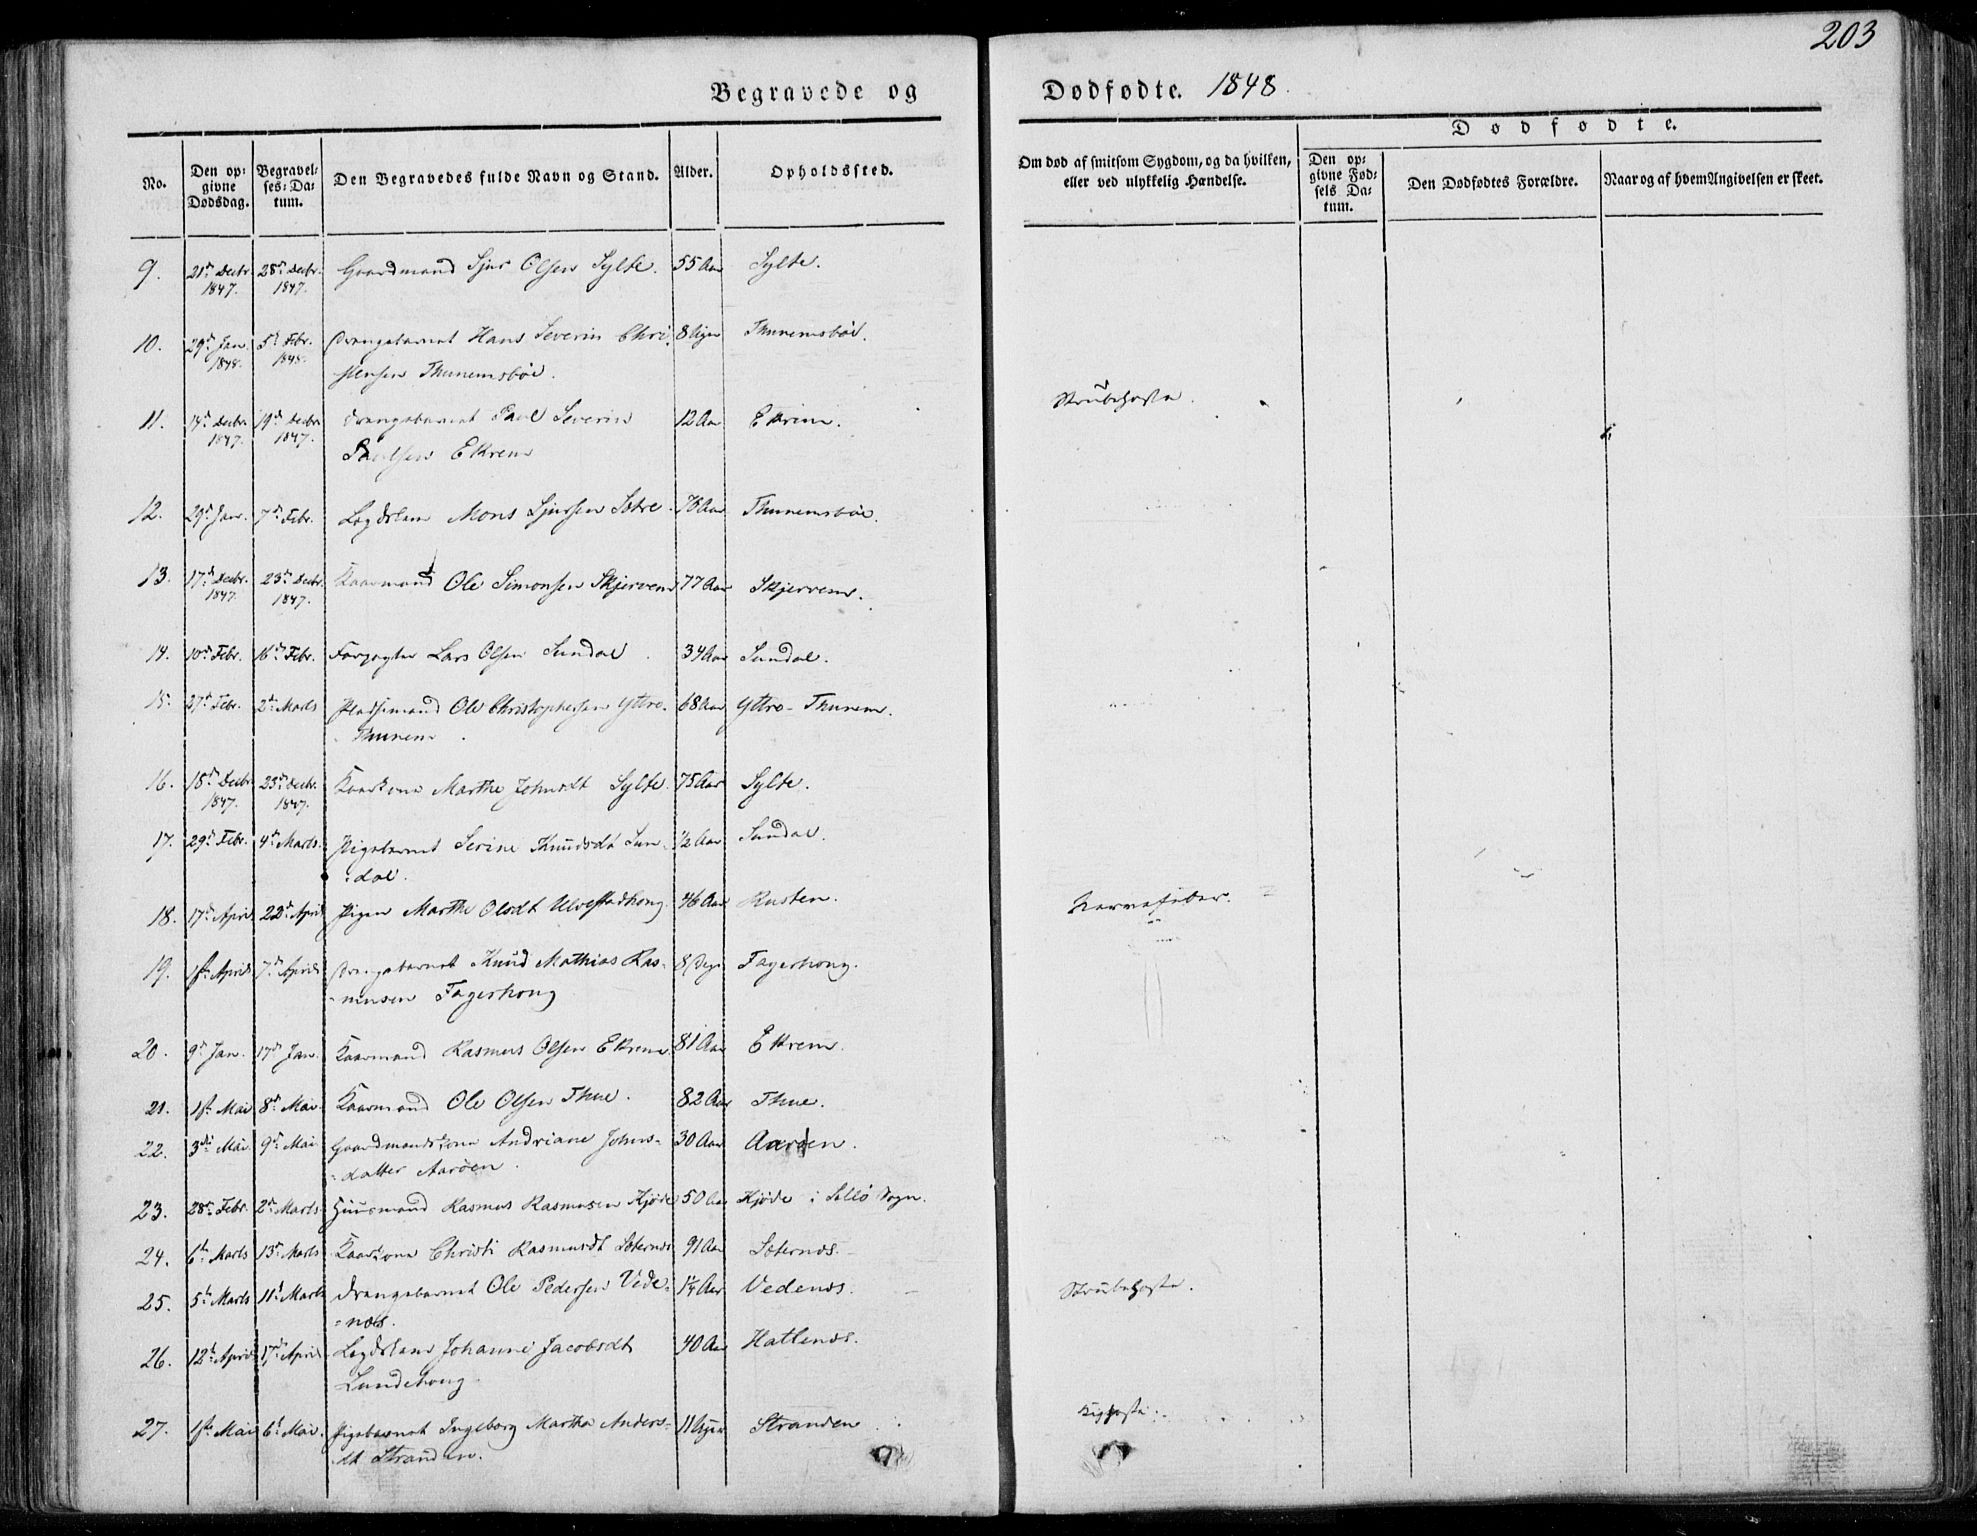 203
Begravede og Dødfødte. 1848.
No.
Den opgivne Dødsdag.
Begravelses-Datum.
Den Begravedes fulde Navn og Stand.
Alder.
Opholdssted.
Om død af smitsom Sygdom, og da hvilken, eller ved ulykkelig Hændelse.
Dødfødte.
Den opgivne Fødsels Datum.
Den Dødfødtes Forældre.
Naar og af hvem Angivelsen er skeet.
9. 21de Decbr. 1847. 28de Decbr. 1847. Gaardmand Sjur Olsen Sylte. 55 Aar Sylte.
10. 29de Jan. 1848. 5te Febr. 1848. Drengebarnet Hans Severin Chri-
stensen Thunemsbøe. 8 Uger Thunemsbøe.
11. 14de Decbr. 1847. 19de Decbr. 1847. Drengebarnet Paul Severin
Paulsen Ekrem 12 Aar Ekrem. Strubehoste.
12. 29de Jan. 7de Febr. Lægdslem Mons Sjursen Sætre. 76 Aar Thunemsbøe.
13. 17de Decbr. 1847. 23de Decbr. 1847. Kaarmand Ole Simonsen Skjervem 77 Aar Skjervem.
14. 10de Febr. 16de Febr. Forpagter Lars Olsen Sundal. 34 Aar Sundal.
15. 27de Febr. 2de Marts Pladsemand Ole Christophersen Yttre-
Thunem. 68 Aar Yttre-Thunem.
16. 18de Decbr. 1847. 23de Decbr. 1847. Kaarkone Marthe Johnsdt Sylte. 75 Aar Sylte.
17. 29de Febr. 4de Marts. Pigebarnet Serine Knudsdt Sun-
dal. 1/2 Aar Sundal.
18. 17de April 22de April Pigen Marthe Olsdt Ulvestadhoug 46 Aar Rusten. Nervefeber.
19. 1ste April 7de April Drengebarnet Knud Mathias Ras-
musen Fagerhoug 8 Dage Fagerhoug.
20. 9de Jan. 17de Jan. Kaarmand Rasmus Olsen Ekrem 81 Aar Ekrem.
21. 1ste Mai 8de Mai. Kaarmand Ole Olsen Thue. 82 Aar Thue.
22. 3die Mai. 9de Mai. Gaardmandskone Andriane Johns-
datter Aarøen. 30 Aar Aarøen.
23. 28de Febr. 2de Marts. Huusmand Rasmus Rasmusen Kjøde 50 Aar Kjøde i Sellø Sogn.
24. 6te Marts 13de Marts Kaarkone Christi Rasmusdt Sæternes 91 Aar Sæternæs.
25. 5te Marts 11te Marts Drengebarnet Ole Pedersen Vede-
næs. 1 1/4 Aar Vedenæs. Strubehoste.
26. 12te April 17de April Lægdslem Johanne Jacobsdt
Lundehoug. 40 Aar Hatlenæs.
27. 1ste Mai 6te Mai. Pigebarnet Ingeborg Martha Anders-
dt Stranden. 11 Uger Stranden. Kighoste.